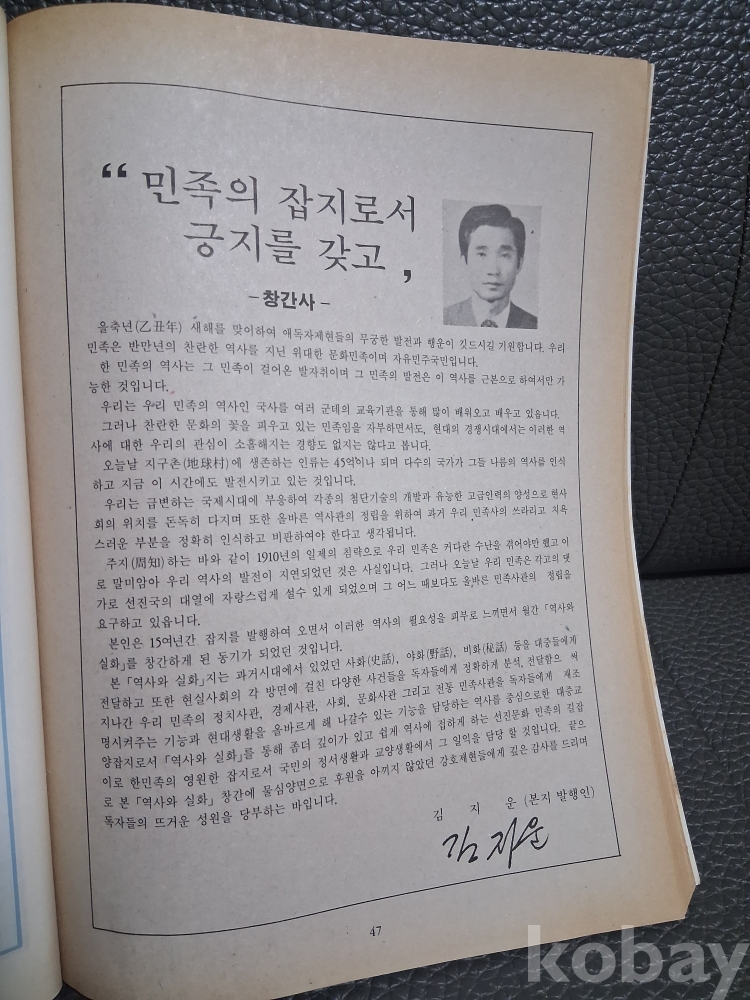 “ 민족의 잡지로서
긍지를 갖고 ,
- 창간사 -
을축년(乙丑年) 새해를 맞이하여 애독자제현들의 무궁한 발전과 행운이 깃드시길 기원합니다. 우리
민족은 반만년의 찬란한 역사를 지닌 위대한 문화민족이며 자유민주국민입니다.
한 민족의 역사는 그 민족이 걸어온 발자취이며 그 민족의 발전은 이 역사를 근본으로 하여서만 가
능한 것입니다.
우리는 우리 민족의 역사인 국사를 여러 군데의 교육기관을 통해 많이 배워오고 배우고 있읍니다.
그러나 찬란한 문화의 꽃을 피우고 있는 민족임을 자부하면서도, 현대의 경쟁시대에서는 이러한 역
사에 대한 우리의 관심이 소홀해지는 경향도 없지는 않다고 봅니다.
오늘날 지구촌(地球村)에 생존하는 인류는 45억이나 되며 다수의 국가가 그들 나름의 역사를 인식
하고 지금 이 시간에도 발전시키고 있는 것입니다.
우리는 급변하는 국제시대에 부응하여 각종의 첨단기술의 개발과 유능한 고급인력의 양성으로 현사
회의 위치를 돈독히 다지며 또한 올바른 역사관의 정립을 위하여 과거 우리 민족사의 쓰라리고 치욕
스러운 부분을 정확히 인식하고 비판하여야 한다고 생각됩니다.
주지(周知)하는 바와 같이 1910년의 일제의 침략으로 우리 민족은 커다란 수난을 겪어야만 했고 이
로 말미암아 우리 역사의 발전이 지연되었던 것은 사실입니다. 그러나 오늘날 우리 민족은 각고의 댓
가로 선진국의 대열에 자랑스럽게 설수 있게 되었으며 그 어느 때보다도 올바른 민족사관의 정립을
요구하고 있읍니다.
본인은 15여년간 잡지를 발행하여 오면서 이러한 역사의 필요성을 피부로 느끼면서 월간 「역사와
실화」를 창간하게 된 동기가 되었던 것입니다.
본 「역사와 실화」지는 과거시대에서 있었던 사화(史話), 야화(野話), 비화(秘話) 등을 대중들에게
전달하고 또한 현실사회의 각 방면에 걸친 다양한 사건들을 독자들에게 정확하게 분석, 전달함으 써
지나간 우리 민족의 정치사관, 경제사관, 사회, 문화사관 그리고 전통 민족사관을 독자들에게 재조
명시켜주는 기능과 현대생활을 올바르게 해 나갈수 있는 기능을 담당하는 역사를 중심으로한 대중교
양잡지로서 「역사와 실화」를 통해 좀더 깊이가 있고 쉽게 역사에 접하게 하는 선진문화 민족의 길잡
이로 한민족의 영원한 잡지로서 국민의 정서생활과 교양생활에서 그 일익을 담당 할 것입니다. 끝으
로 본 「역사와 실화」 창간에 물심양면으로 후원을 아끼지 않았던 강호제현들에게 깊은 감사를 드리며
독자들의 뜨거운 성원을 당부하는 바입니다.
김 지 운 (본지 발행인)
김지운
47
kobay